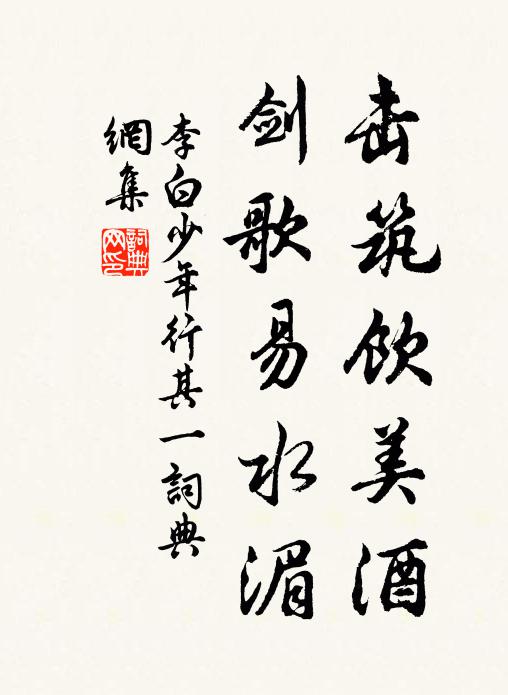 击筑饮美酒
剑歌易水湄
李白少年行其一詞典
網集
詞典
网印